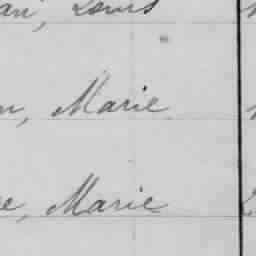 an, Louis
n, Marie
e, Marie